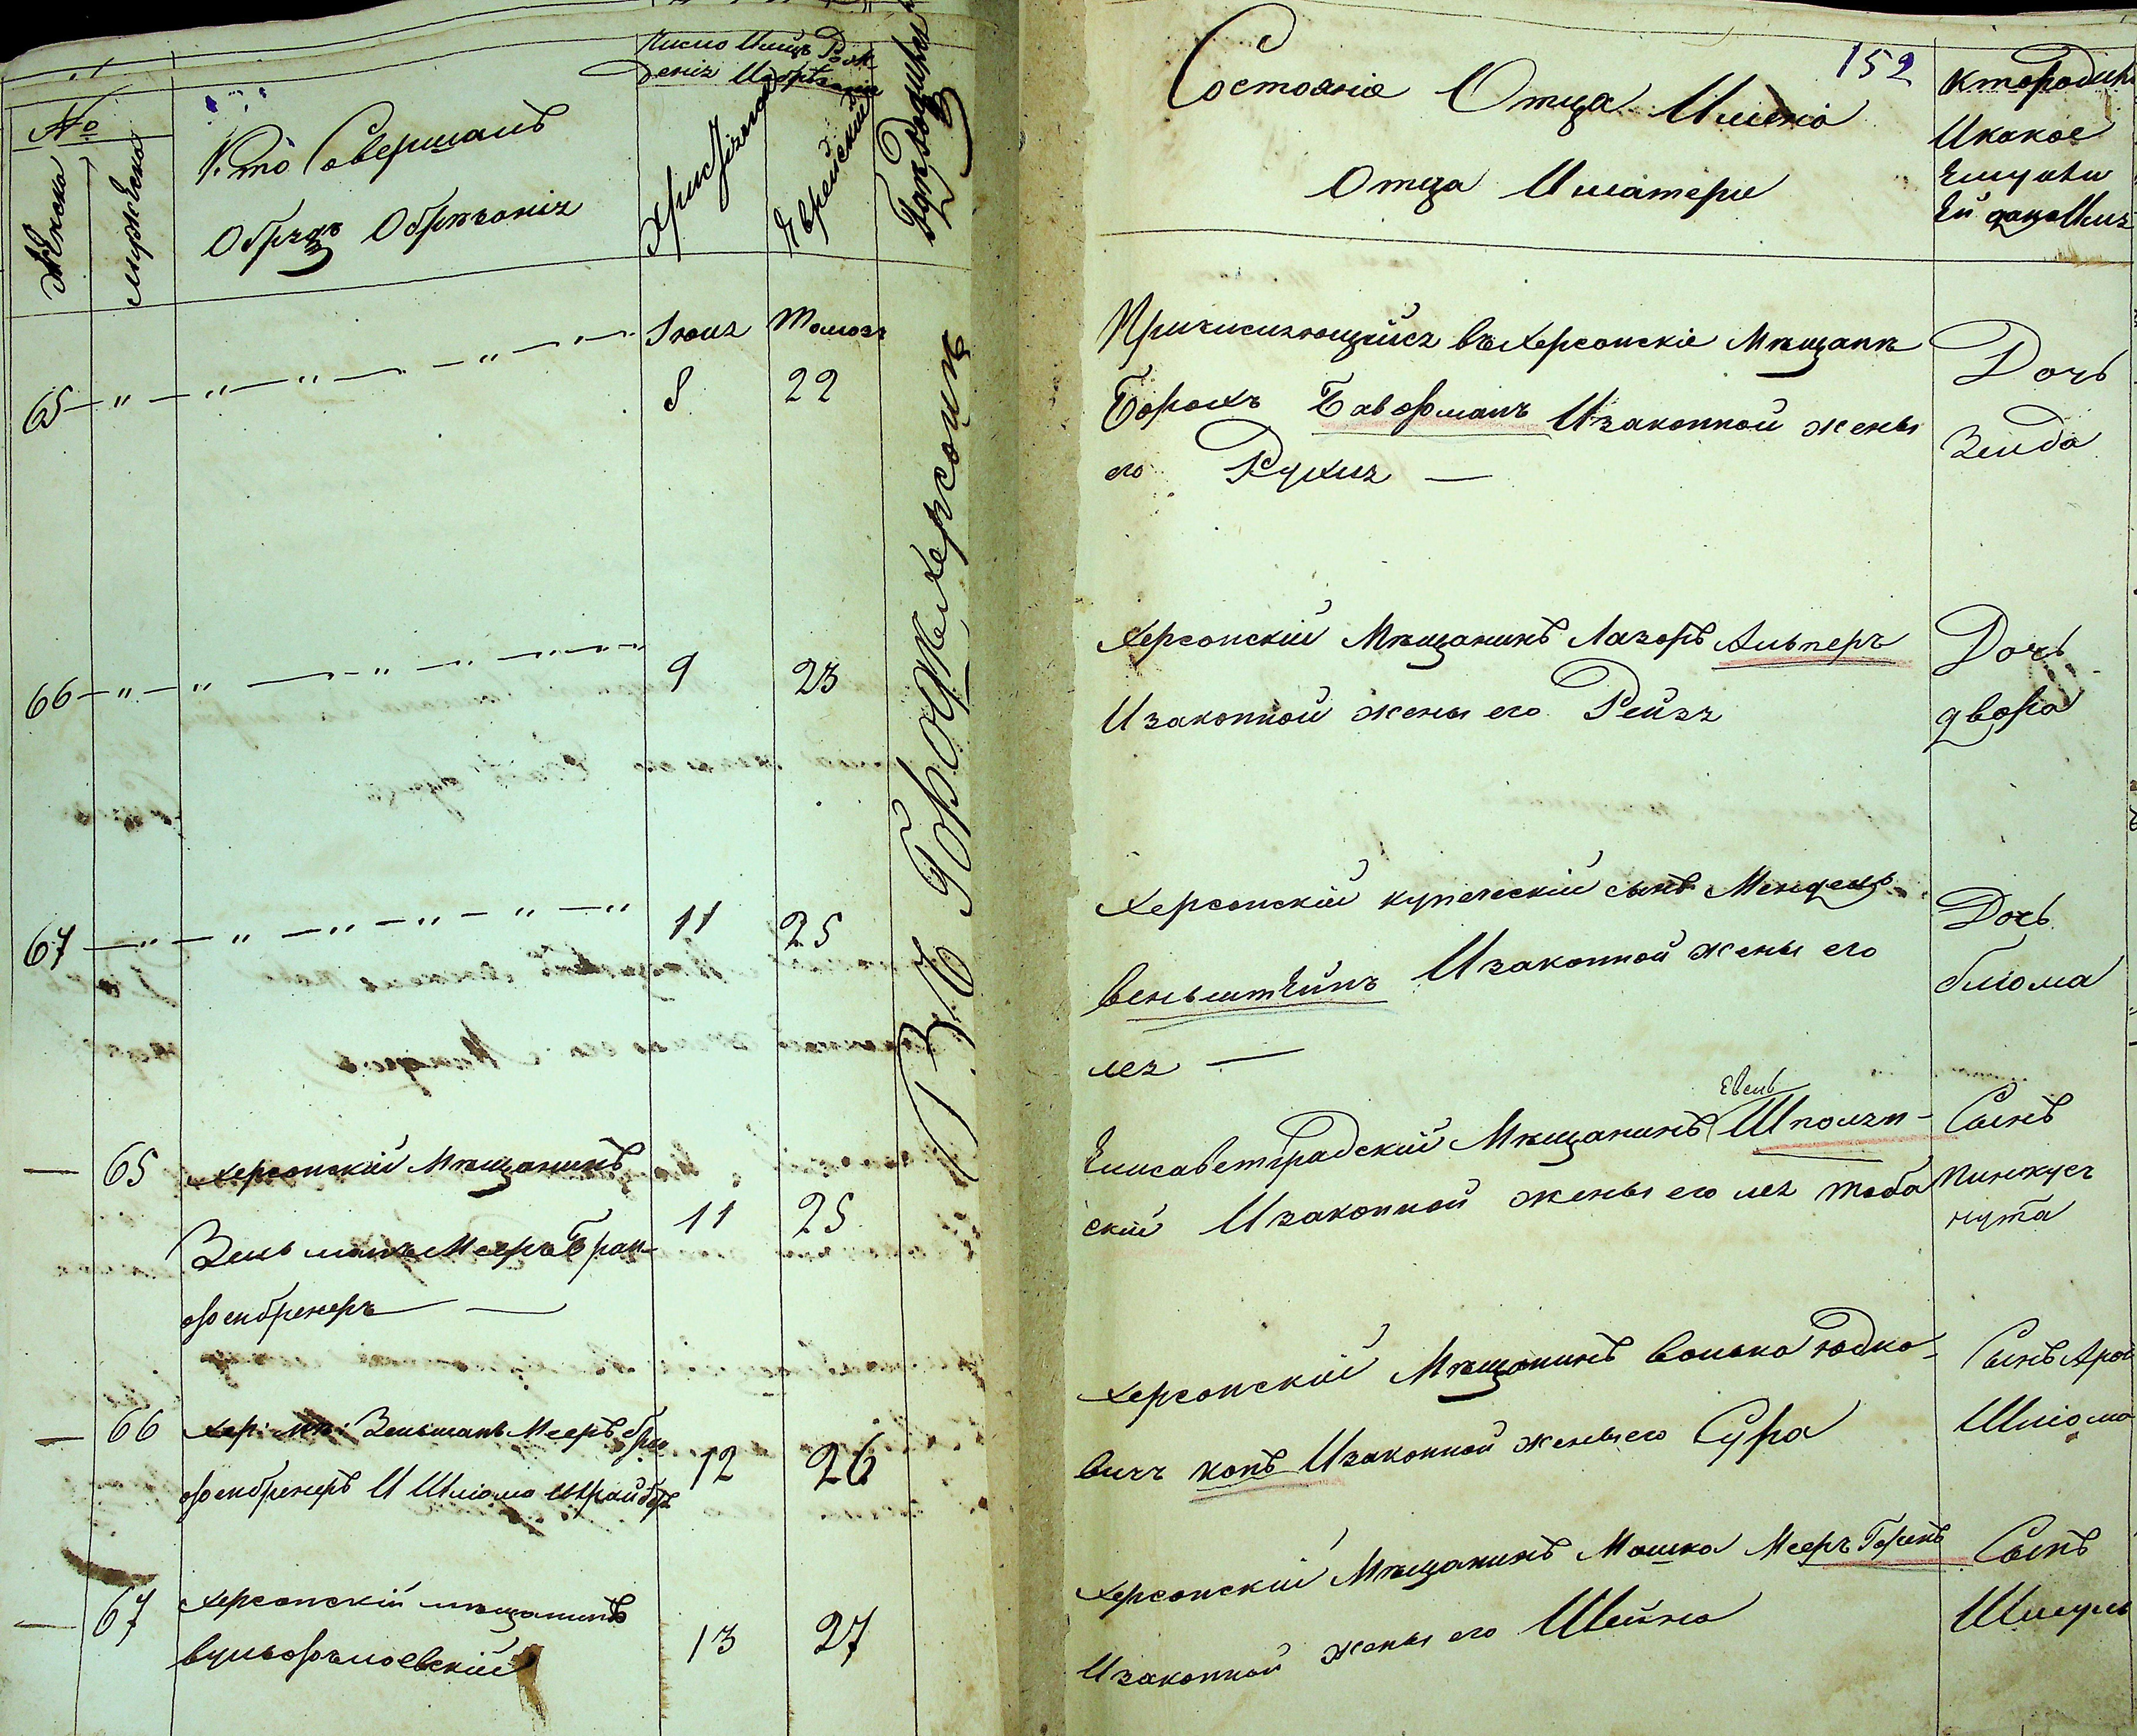 №
Женска
Мужеска
Кто Совершалъ
Обрядъ Обрезанія
Число И мѣцъ Рож
денія И обрѣзанія
Христіанскій
Еврейскій
Гдѣ Родился
152
Состояніе Отца Имена
Отца И матери
Кто Родился
И какое
Ему или
Ей дано Имя
Въ Городѣ Херсонѣ
65 — " — " — " — " —
Іюня
8
Тамозъ
22
Причисляющійся въ Херсонскіе Мѣщане
Борохъ Бавофманъ И законной жены
его Рухля —
Дочь
Зелда
66 — " — " — " — " —
9
23
Херсонскій Мѣщанинъ Лазорь Альперъ
И законной жены его Рейзя
Дочь
двора
67 — " — " — " — " — " — "
11
25
Херсонскій купеческій сынъ Мендель
Веньштейнъ И законной жены его
лея —
Дочь
блюма
— 65
Херсонскій Мѣщанинъ
Зельманъ Мееръ Бран-
офенбренеръ —
11
25
Елисаветградскій Мѣщанинъ Шполян-
скій И законной жены его лея тоба
Сынъ
Пинхусъ
нута
— 66
Хер: мѣ: Зельманъ Мееръ бра
офенбренеръ И Шліома шрайберъ
12
26
Херсонскій Мѣщанинъ Волько Юдко-
вичъ конъ И законной жены его Сура
Сынъ Арон
Шліома
— 67
Херсонскій мѣщанинъ
13
27
Херсонскій Мѣщанинъ Мошко Мееръ Горенъ
И законной жены его Шейна
Сынъ
Шмуль